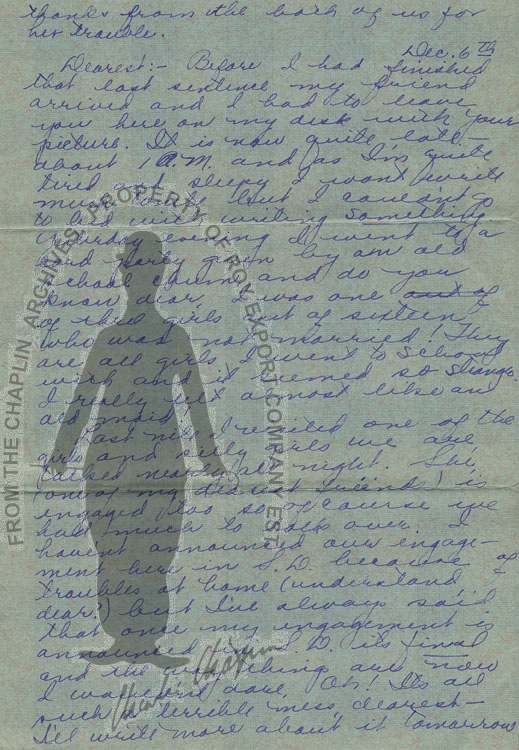 thanks from the both of us for
her trouble.
Dec. 6th
Dearest:- Before I had finished
that last sentence my friend
arrived and I had to leave
you here on my desk with your
picture. It is now quite late -
about 1 A.M. and as I'm quite
tired and sleepy I won't write
much more but I couldn't go
to bed without writing something
Saturday evening I went to a
card party given by an old
school chum and do you
know dear, I was one out of
of three girls out of sixteen
who was not married! They
are all girls I went to school
with and it seemed so strange.
I really felt almost like an
old maid!
Last nite I visited one of the
girls and silly girls we are
talked nearly all night. She,
(one of my dearest friends) is
engaged too so of course we
had much to talk over. I
havent announced our engage-
ment here in S.D. because of
troubles at home (understand
dear?) but I've always said
that once my engagement is
announced in S.D. its final
and the things are now
I wouldn't dare. Oh! Its all
such a terrible mess, dearest -
I'll write more about it tomorrow
FROM THE CHAPLIN ARCHIVES, PROPERTY OF ROY EXPORT COMPANY EST.
Charlie Chaplin